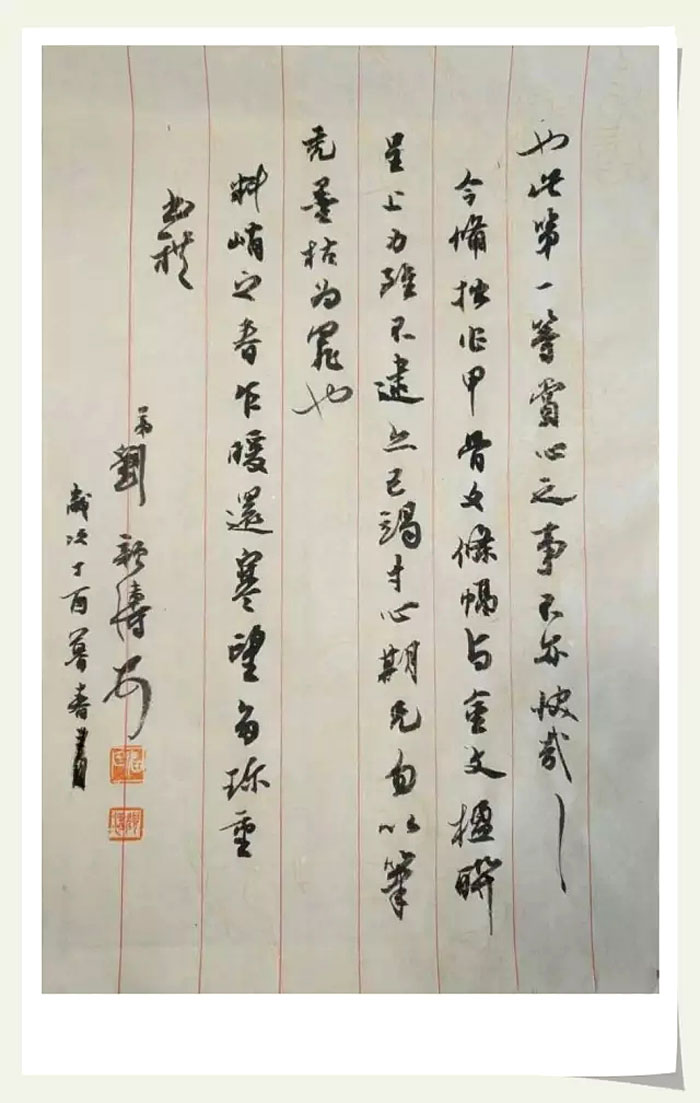 也此第一等賞心之事不亦快哉
今備拙作甲骨文條幅与金文楹聯
呈上力雖不逮然已竭寸心期兄勿以筆
禿墨枯为罪也
料峭之春乍暖還寒望多珍重
弟劉
歲次丁酉暮春